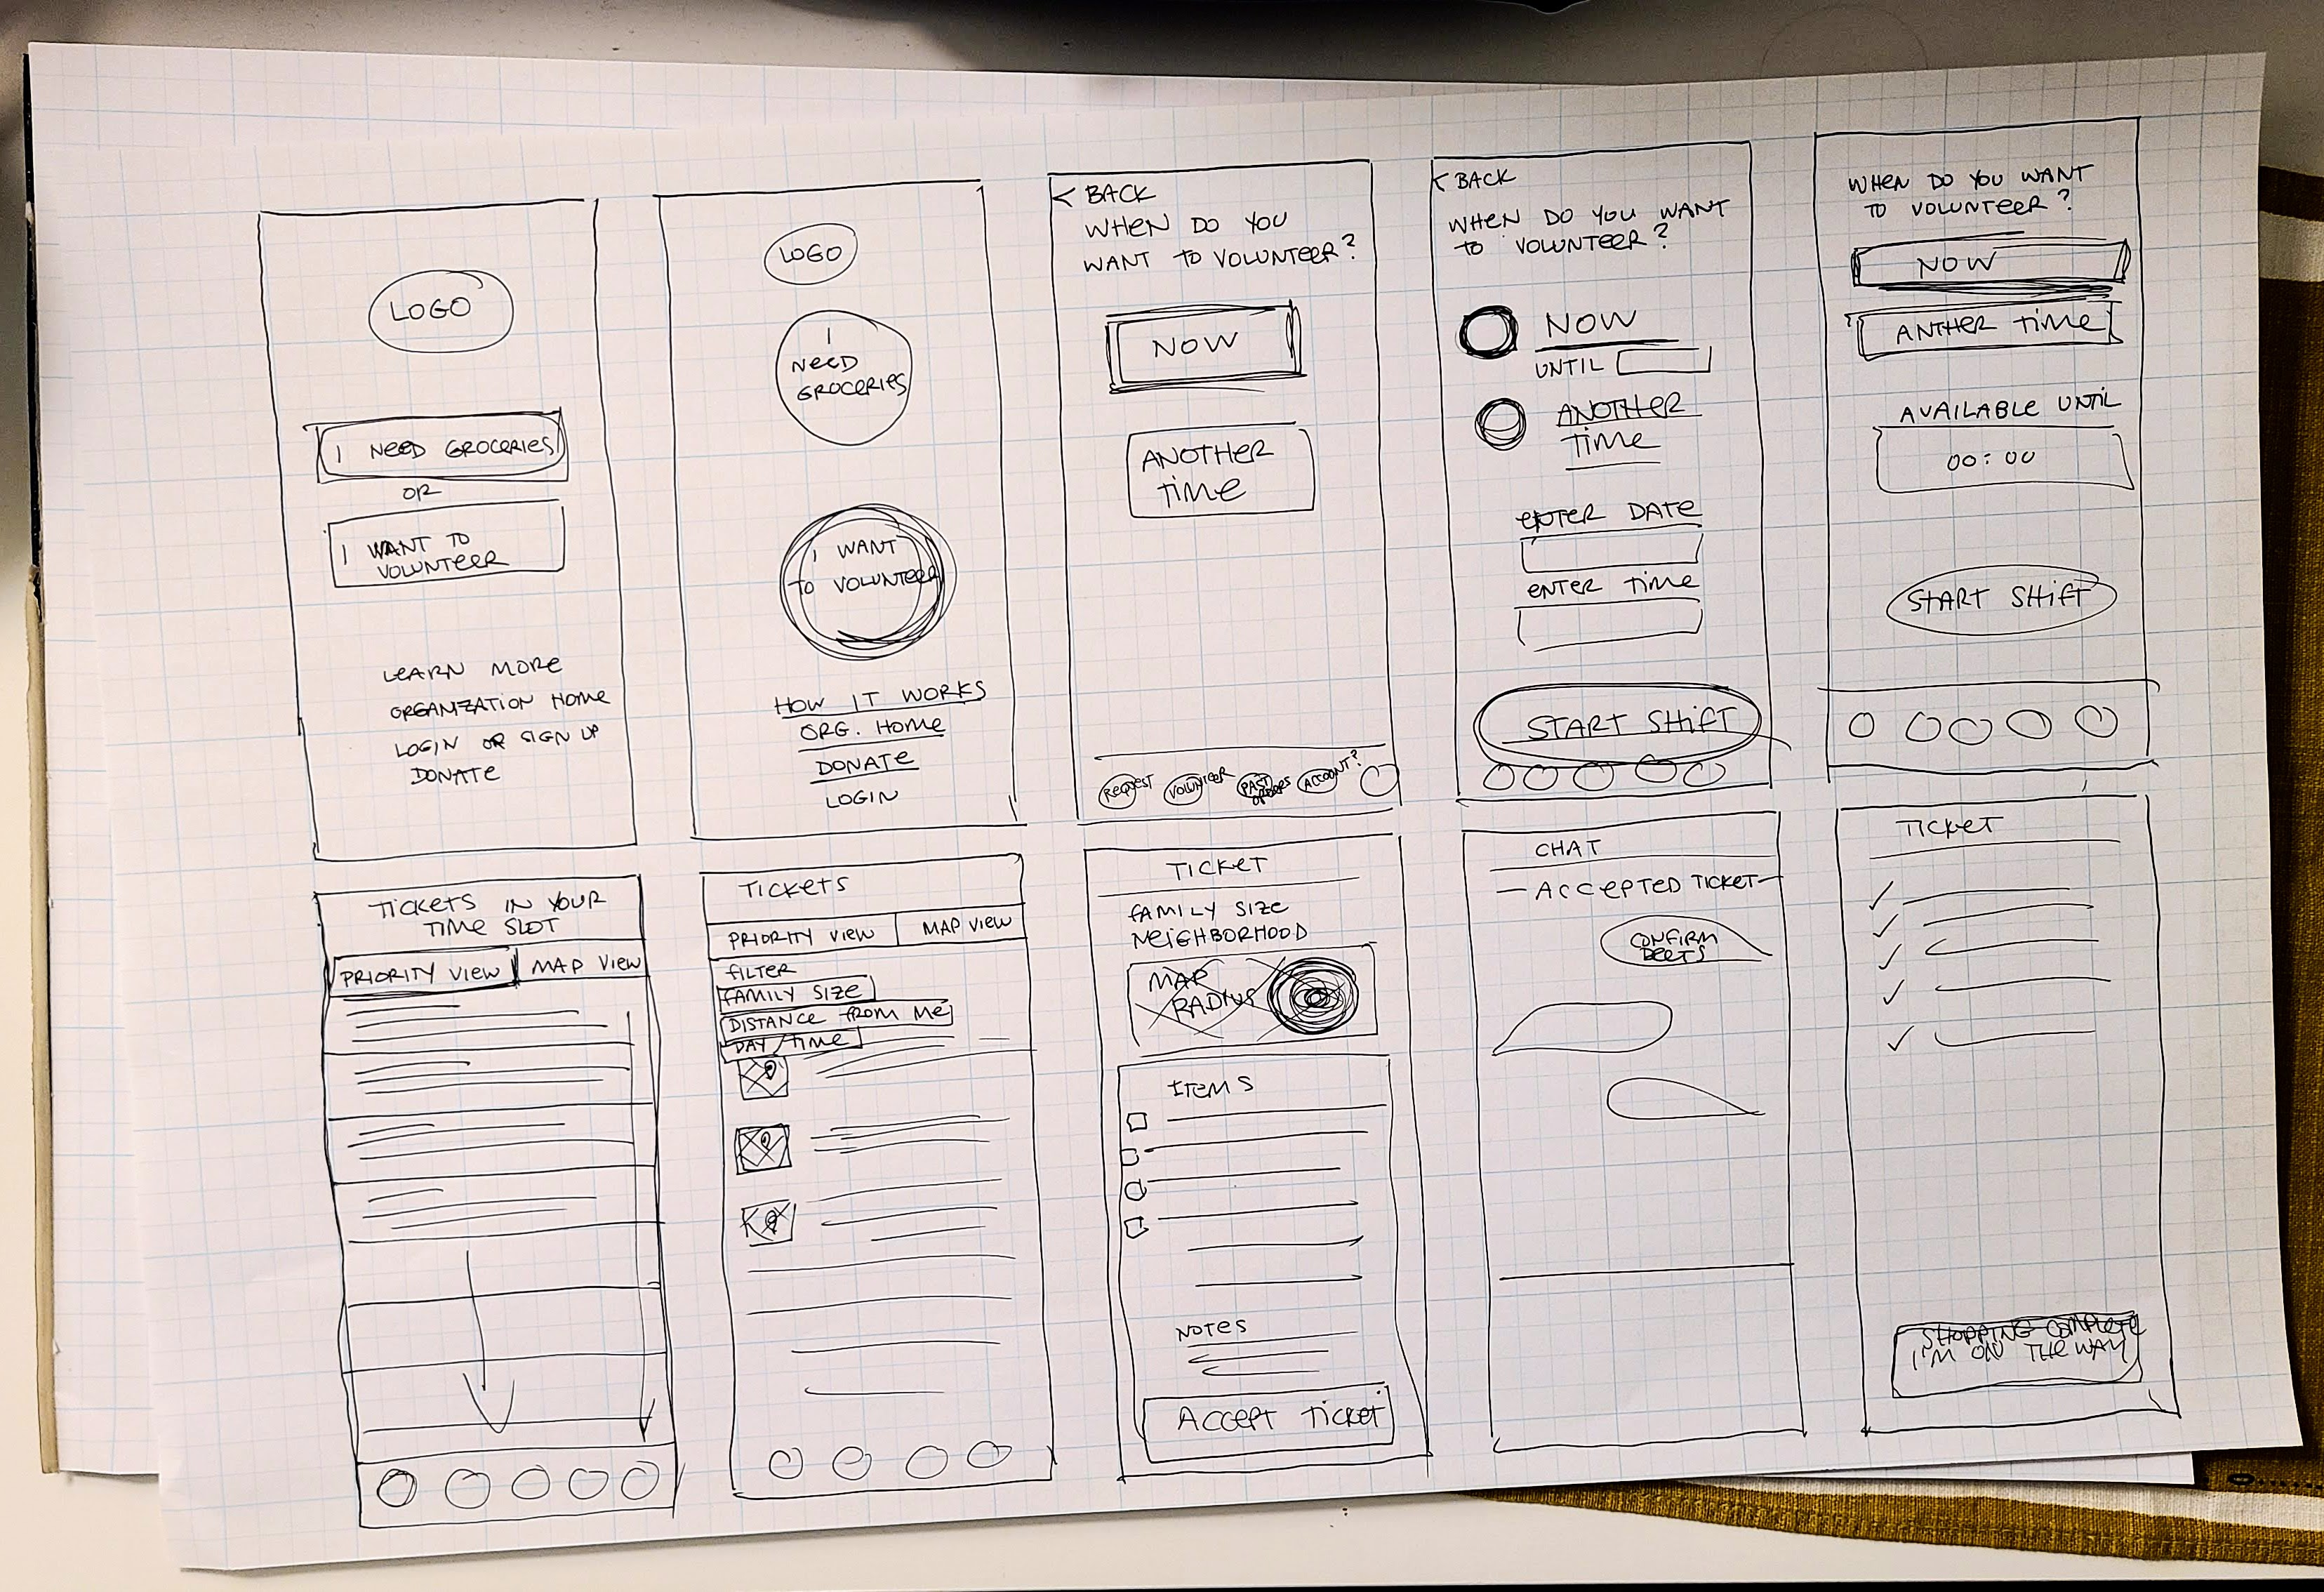 LOGO
I NEED GROCERIES
OR
I WANT TO
VOLUNTEER
LEARN MORE
ORGANIZATION HOME
LOGIN OR SIGN UP
DONATE
LOGO
I
NEED
GROCERIES
I WANT
TO VOLUNTEER
HOW IT WORKS
ORG. HOME
DONATE
LOGIN
< BACK
WHEN DO YOU
WANT TO VOLUNTEER?
NOW
ANOTHER
TIME
REQUEST
VOLUNTEER
PAST
ORDERS
ACCOUNT?
< BACK
WHEN DO YOU WANT
TO VOLUNTEER?
NOW
UNTIL
ANOTHER
TIME
ENTER DATE
ENTER TIME
START SHIFT
WHEN DO YOU WANT
TO VOLUNTEER?
NOW
ANTHER TIME
AVAILABLE UNTIL
00:00
START SHIFT
TICKETS IN YOUR
TIME SLOT
PRIORITY VIEW
MAP VIEW
TICKETS
PRIORITY VIEW
MAP VIEW
FILTER
FAMILY SIZE
DISTANCE FROM ME
DAY/TIME
TICKET
FAMILY SIZE
NEIGHBORHOOD
MAP
RADIUS
ITEMS
NOTES
ACCEPT TICKET
CHAT
— ACCEPTED TICKET —
CONFIRM
DEETS
TICKET
SHOPPING COMPLETE
I'M ON THE WAY